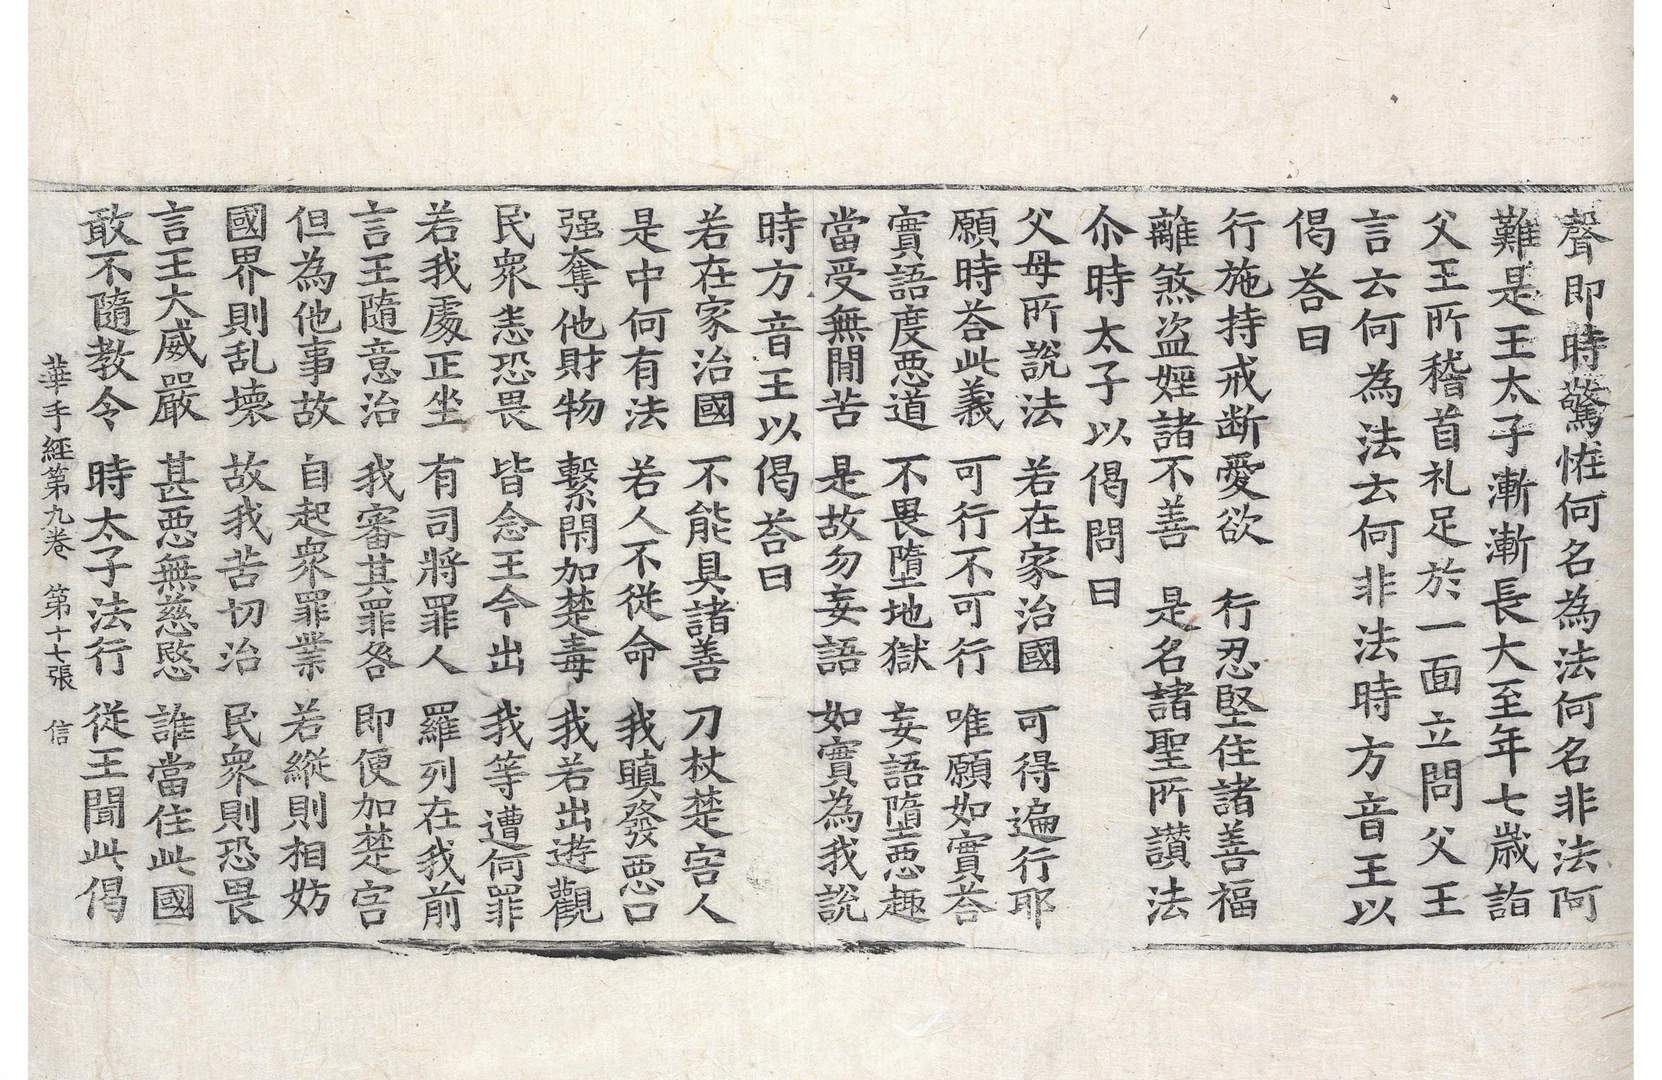 聲即時驚恠何名為法何名非法阿
難是王太子漸漸長大至年七歲詣
父王所稽首礼足於一面立問父王
言云何為法云何非法時方音王以
偈荅曰
行施持戒断愛欲　行忍堅住諸善福
離煞盗婬諸不善　是名諸聖所讃法
尒時太子以偈問曰
父母所說法　若在家治國　可得遍行耶
願時荅此義　可行不可行　唯願如實荅
實語度惡道　不畏墮地獄　妄語墮惡趣
當受無間苦　是故勿妄語　如實為我說
時方音王以偈荅曰
若在家治國　不能具諸善　刀杖楚害人
是中何有法　若人不從命　我瞋發惡口
强奪他財物　繫閇加楚毒　我若出遊觀
民衆恚恐畏　皆念王今出　我等遭何罪
若我處正坐　有司將罪人　羅列在我前
言王隨意治　我審其罪咎　即便加楚害
但為他事故　自起衆罪業　若縱則相妨
國界則乱壞　故我苦切治　民衆則恐畏
言王大威嚴　甚惡無慈愍　誰當住此國
敢不隨教令　時太子法行　從王聞此偈
華手經第九卷　第十七張　信